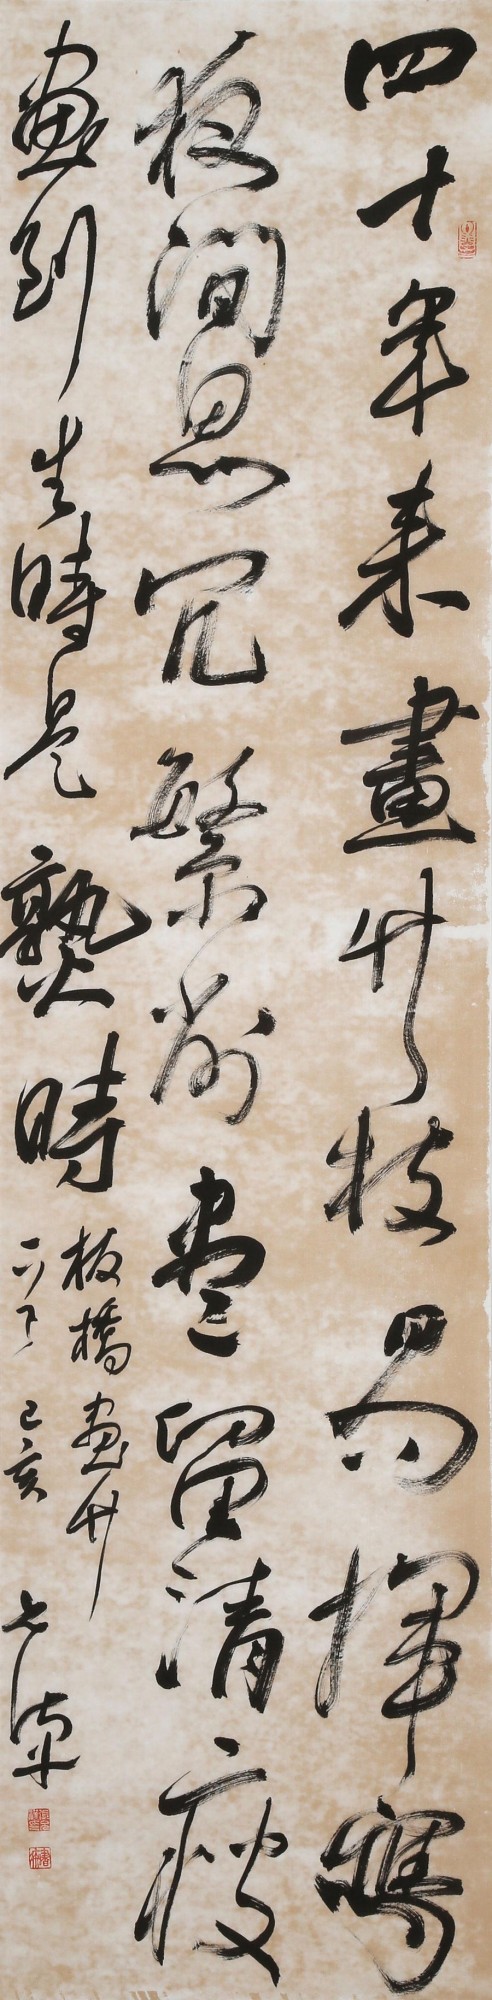 四十年来畫竹枝日間揮寫
夜間思冗繁削盡留清瘦
畫到生時是熟時
板橋畫竹
己亥